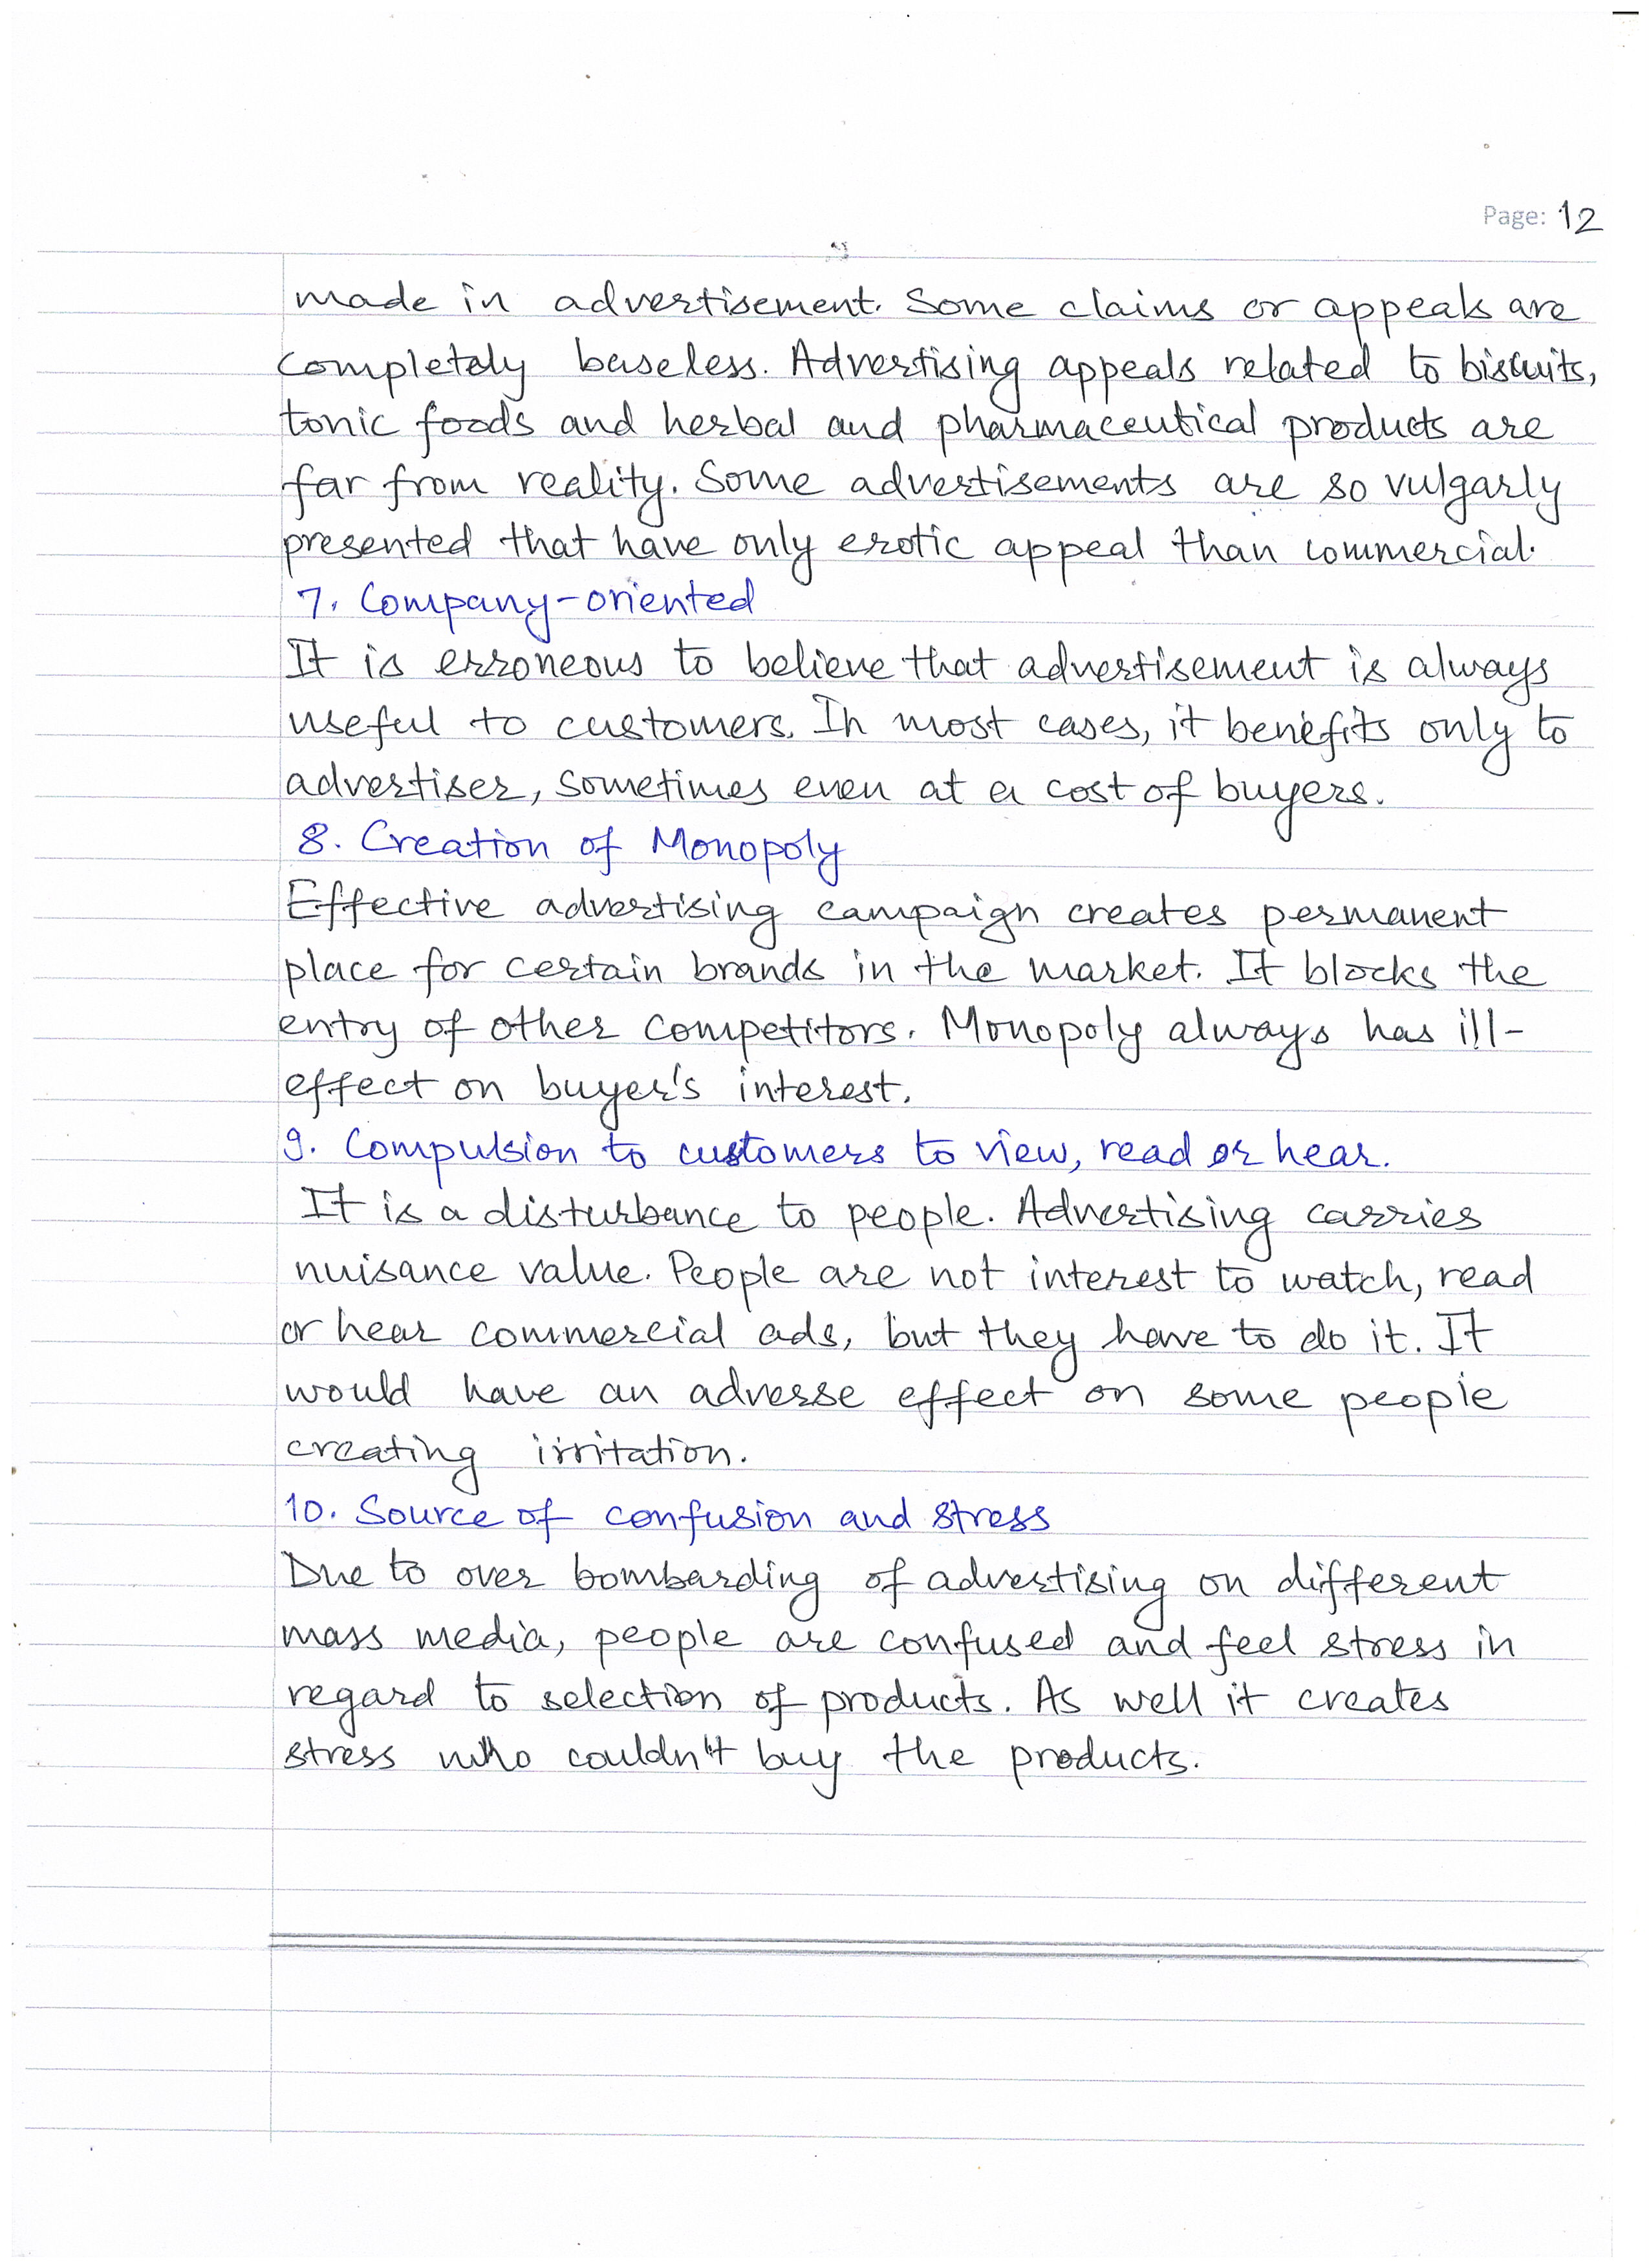 Page: 12
made in advertisement. Some claims or appeals are
completely baseless. Advertising appeals related to biscuits,
tonic foods and herbal and pharmaceutical products are
far from reality. Some advertisements are so vulgarly
presented that have only erotic appeal than commercial.
7. Company-oriented
It is erroneous to believe that advertisement is always
useful to customers. In most cases, it benefits only to
advertiser, sometimes even at a cost of buyers.
8. Creation of Monopoly
Effective advertising campaign creates permanent
place for certain brands in the market. It blocks the
entry of other competitors. Monopoly always has ill-
effect on buyer's interest.
9. Compulsion to customers to view, read or hear.
It is a disturbance to people. Advertising carries
nuisance value. People are not interest to watch, read
or hear commercial ads, but they have to do it. It
would have an adverse effect on some people
creating irritation.
10. Source of confusion and stress
Due to over bombarding of advertising on different
mass media, people are confused and feel stress in
regard to selection of products. As well it creates
stress who couldn't buy the products.